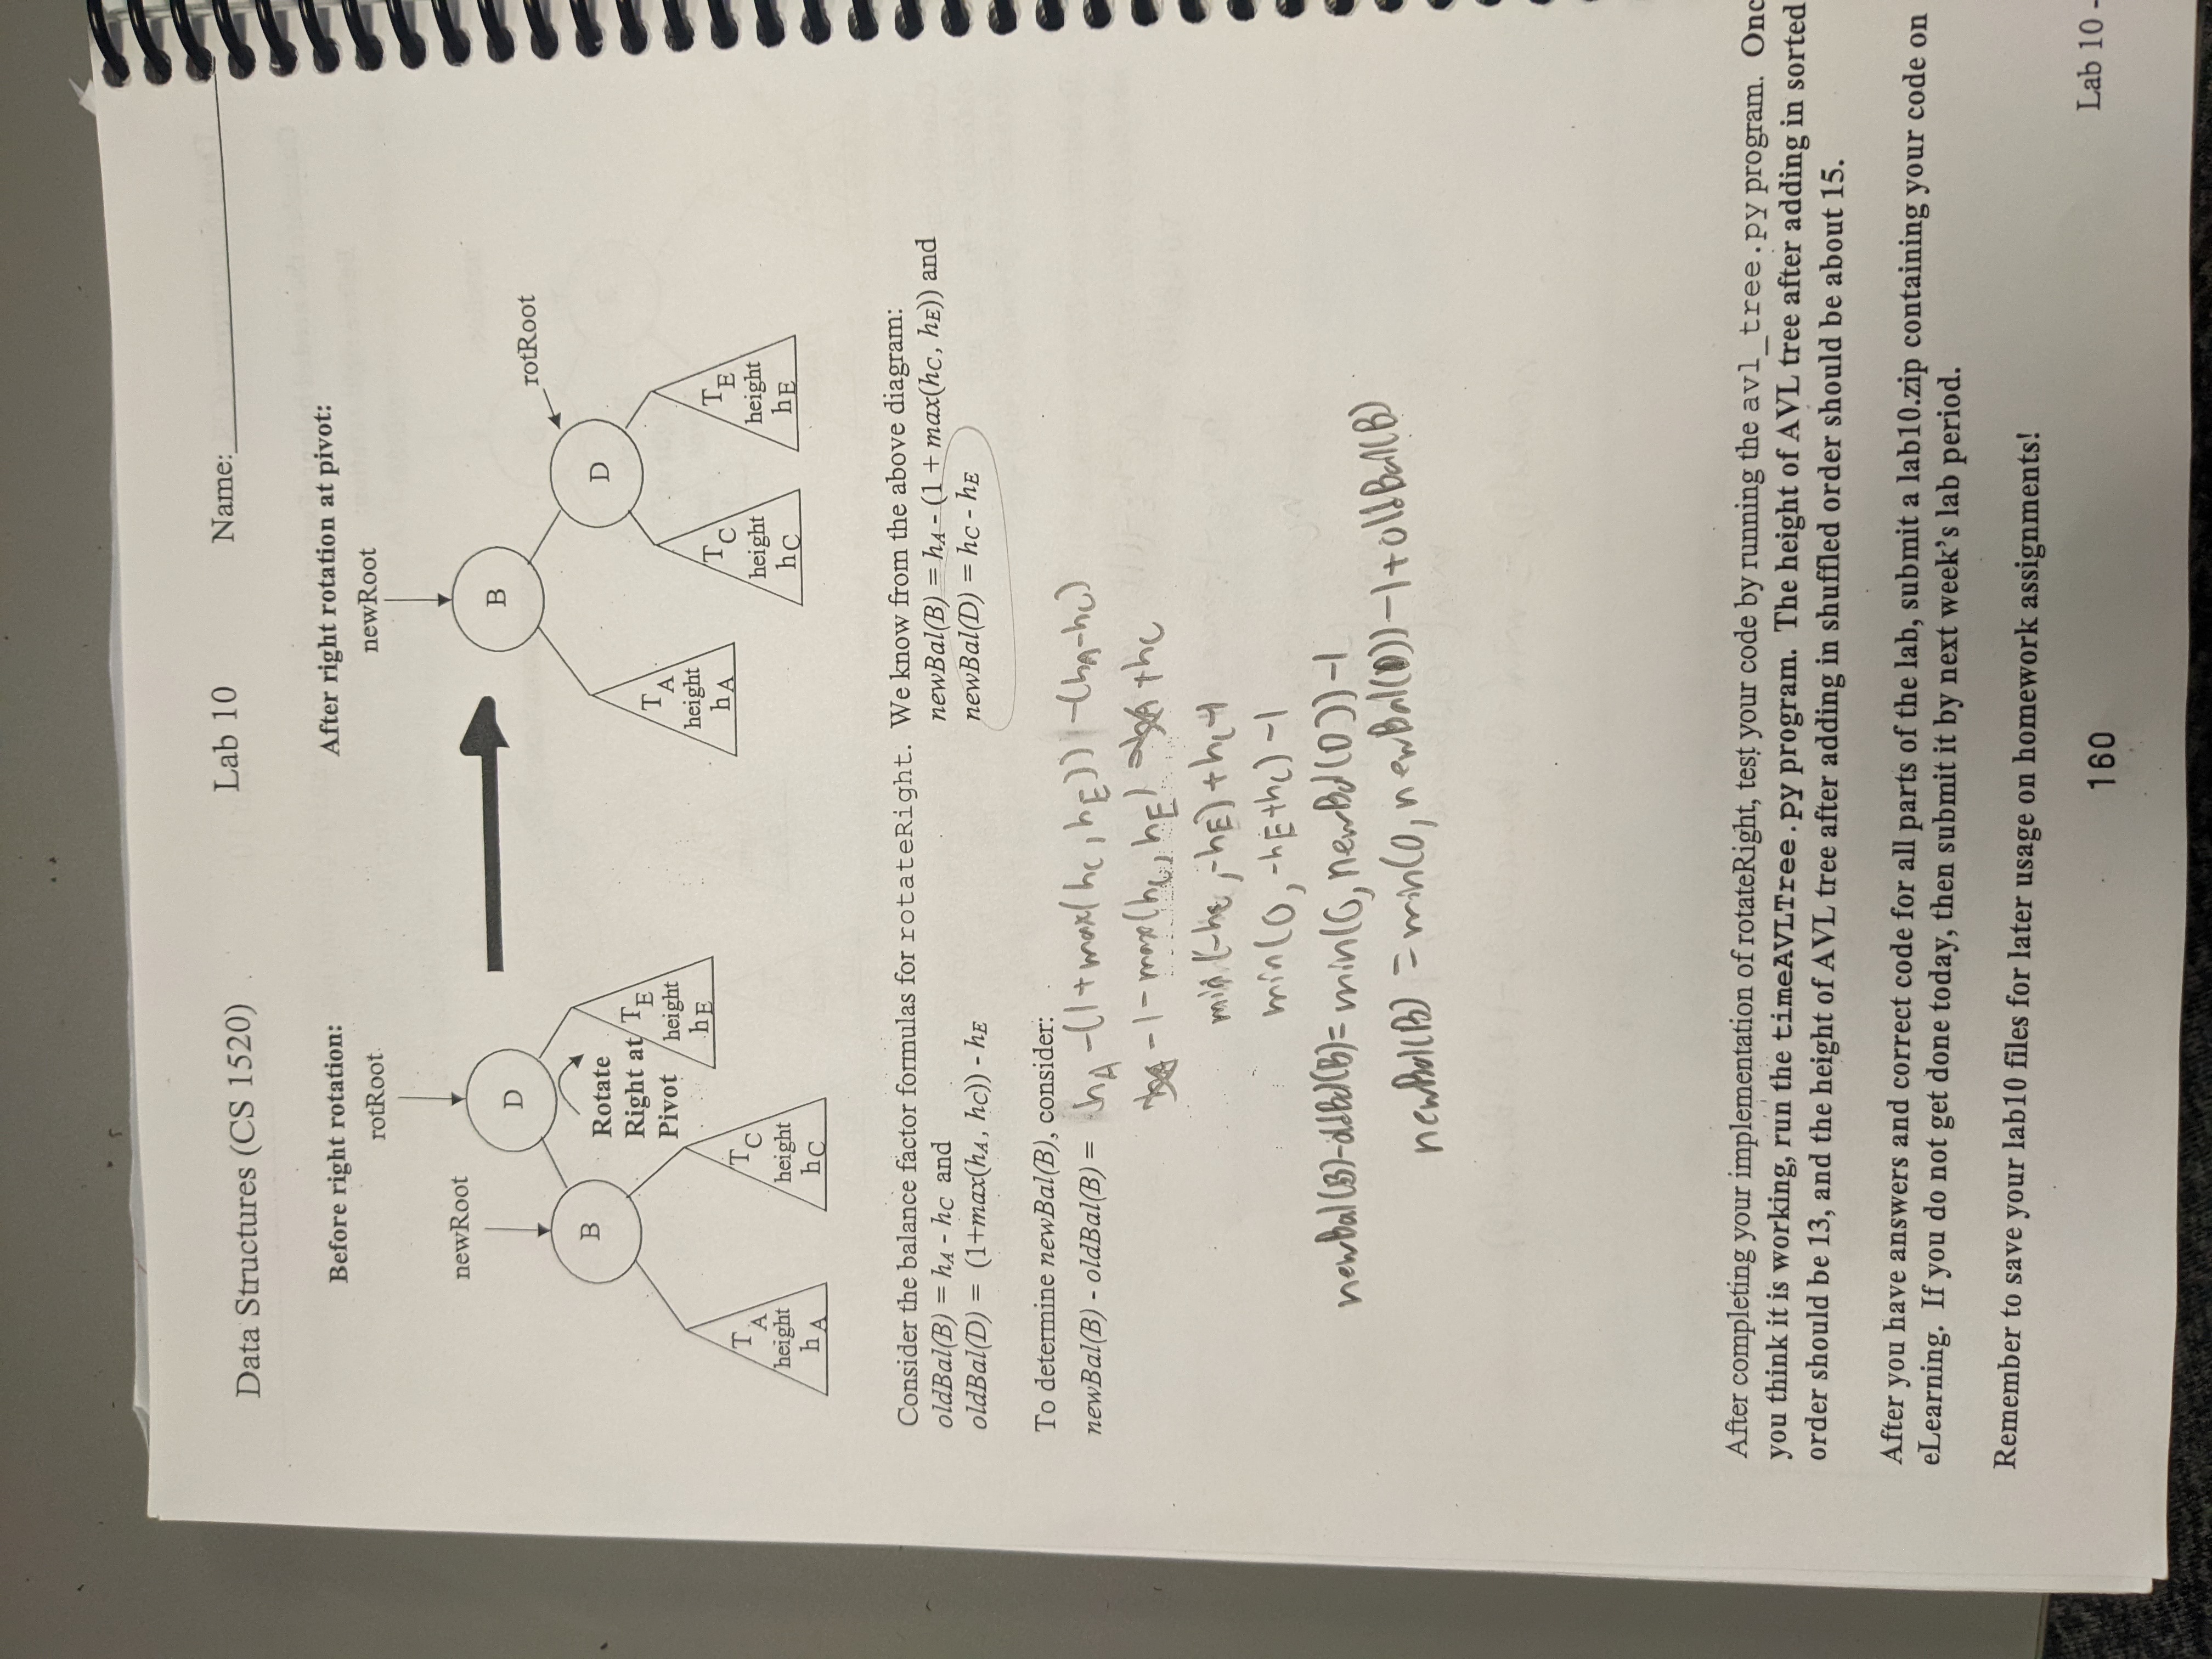 Data Structures (CS 1520) Lab 10 Name:
Before right rotation: After right rotation at pivot:
rotRoot
newRoot
D
B
Rotate
Right at
Pivot
T A
height
h A
T C
height
h C
T E
height
h E
newRoot
B
rotRoot
D
T A
height
h A
T C
height
h C
T E
height
h E
Consider the balance factor formulas for rotateRight. We know from the above diagram:
oldBal(B) = hA - hC and newBal(B) = hA - (1 + max(hC, hE)) and
oldBal(D) = (1+max(hA, hC)) - hE newBal(D) = hC - hE
To determine newBal(B), consider:
newBal(B) - oldBal(B) = hA - (1 + max(hC, hE)) - (hA - hC)
hA - 1 - max(hC, hE) - hA + hC
min(-hC, -hE) + hC - 1
min(0, -hE + hC) - 1
newBal(B) - oldBal(B) = min(0, newBal(D)) - 1
newBal(B) = min(0, newBal(D)) - 1 + oldBal(B)
After completing your implementation of rotateRight, test your code by running the avl_tree.py program. Onc
you think it is working, run the timeAVLTree.py program. The height of AVL tree after adding in sorted
order should be 13, and the height of AVL tree after adding in shuffled order should be about 15.
After you have answers and correct code for all parts of the lab, submit a lab10.zip containing your code on
eLearning. If you do not get done today, then submit it by next week's lab period.
Remember to save your lab10 files for later usage on homework assignments!
160
Lab 10 -